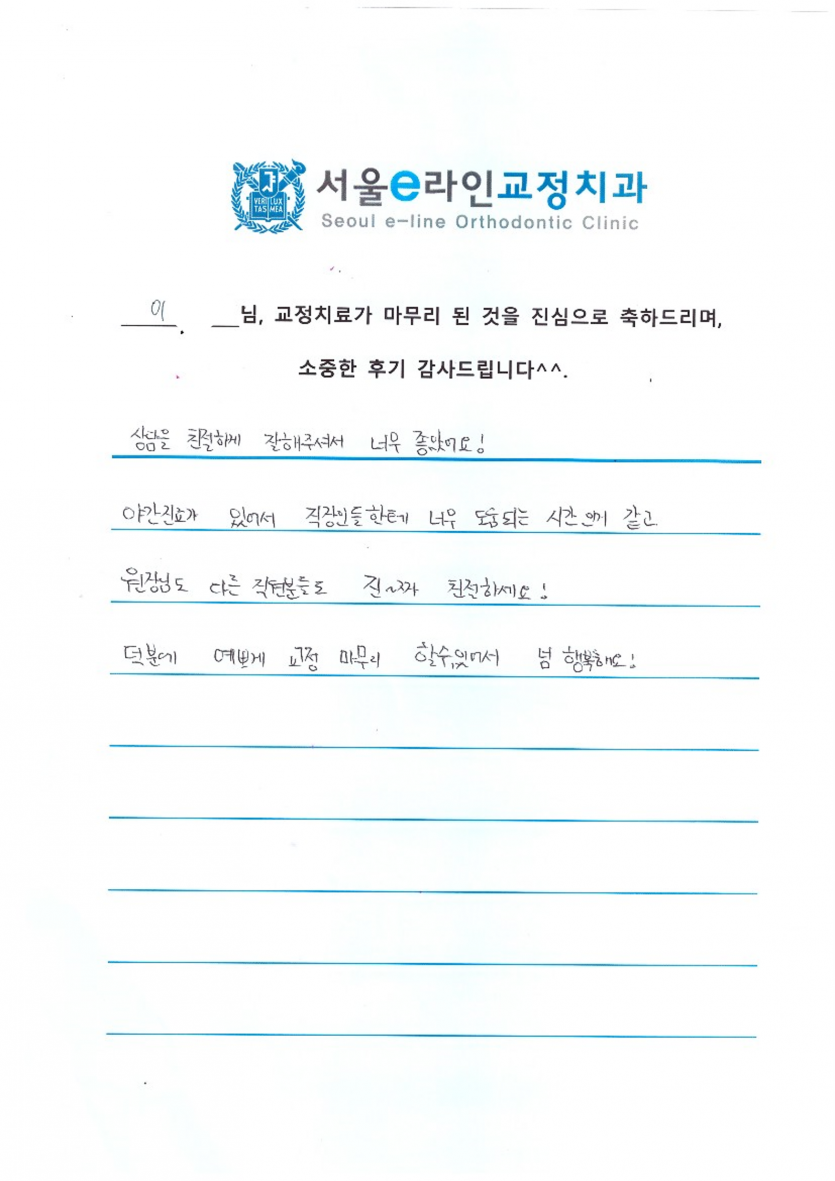 서울e라인교정치과
VERI LUX TAS MEA
Seoul e-line Orthodontic Clinic
이 님, 교정치료가 마무리 된 것을 진심으로 축하드리며,
소중한 후기 감사드립니다^^.
상담을 친절하게 잘해주셔서 너무 좋았어요!
야간진료가 있어서 직장인들한테 너무 도움되는 시간 같고
원장님도 다른 직원분들도 진~짜 친절하세요!
덕분에 예쁘게 교정 마무리 할수있어서 넘 행복해요!